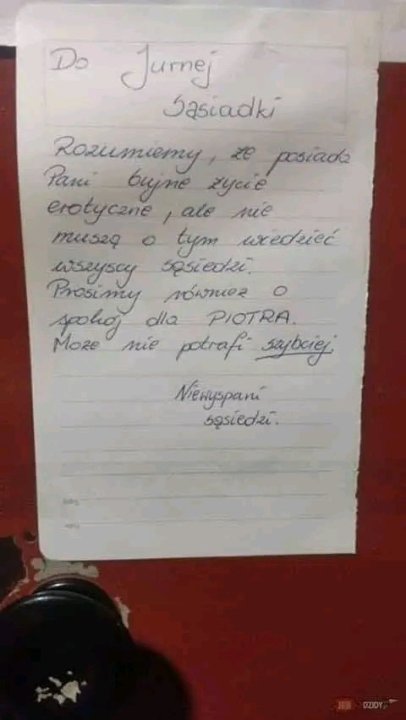 Do Jurnej
Sąsiadki
Rozumiemy, że posiada
Pani bujne życie
erotyczne, ale nie
muszą o tym wiedzieć
wszyscy sąsiedzi.
Prosimy również o
spokój dla PIOTRA.
Może nie potrafi szybciej.
Niewyspani
sąsiedzi.
DZIDY